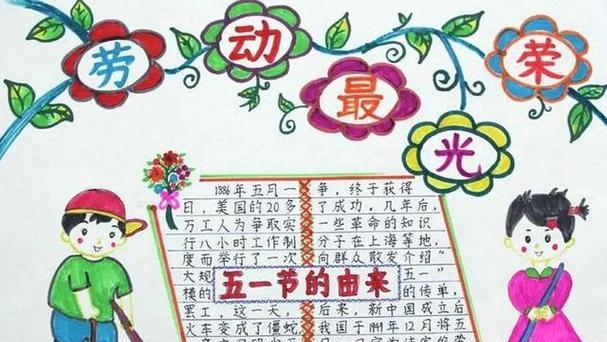 劳动最光荣
五一节的由来
1886年五月一
日，美国的20多
万工人为争取实
行八小时工作制
度而举行了一次
大规
模的
罢工，这一天，
火车变成了僵蛇
争，终于获得
了成功。几年后，
一些革命的知识
分子在上海等地，
向群众散发介绍“
五一”
的传单，
后来，新中国成立后
我国于1949年12月将五